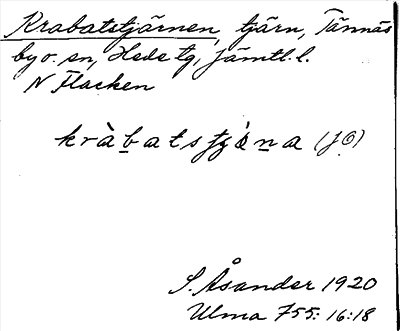 Krabatstjärnen, tjärn, Tännäs
by o. sn, Hede tg, Jämtl. l.
N Flacken
kràbatstjäna (jö)
S. Åsander 1920
Ulma 755: 16:18